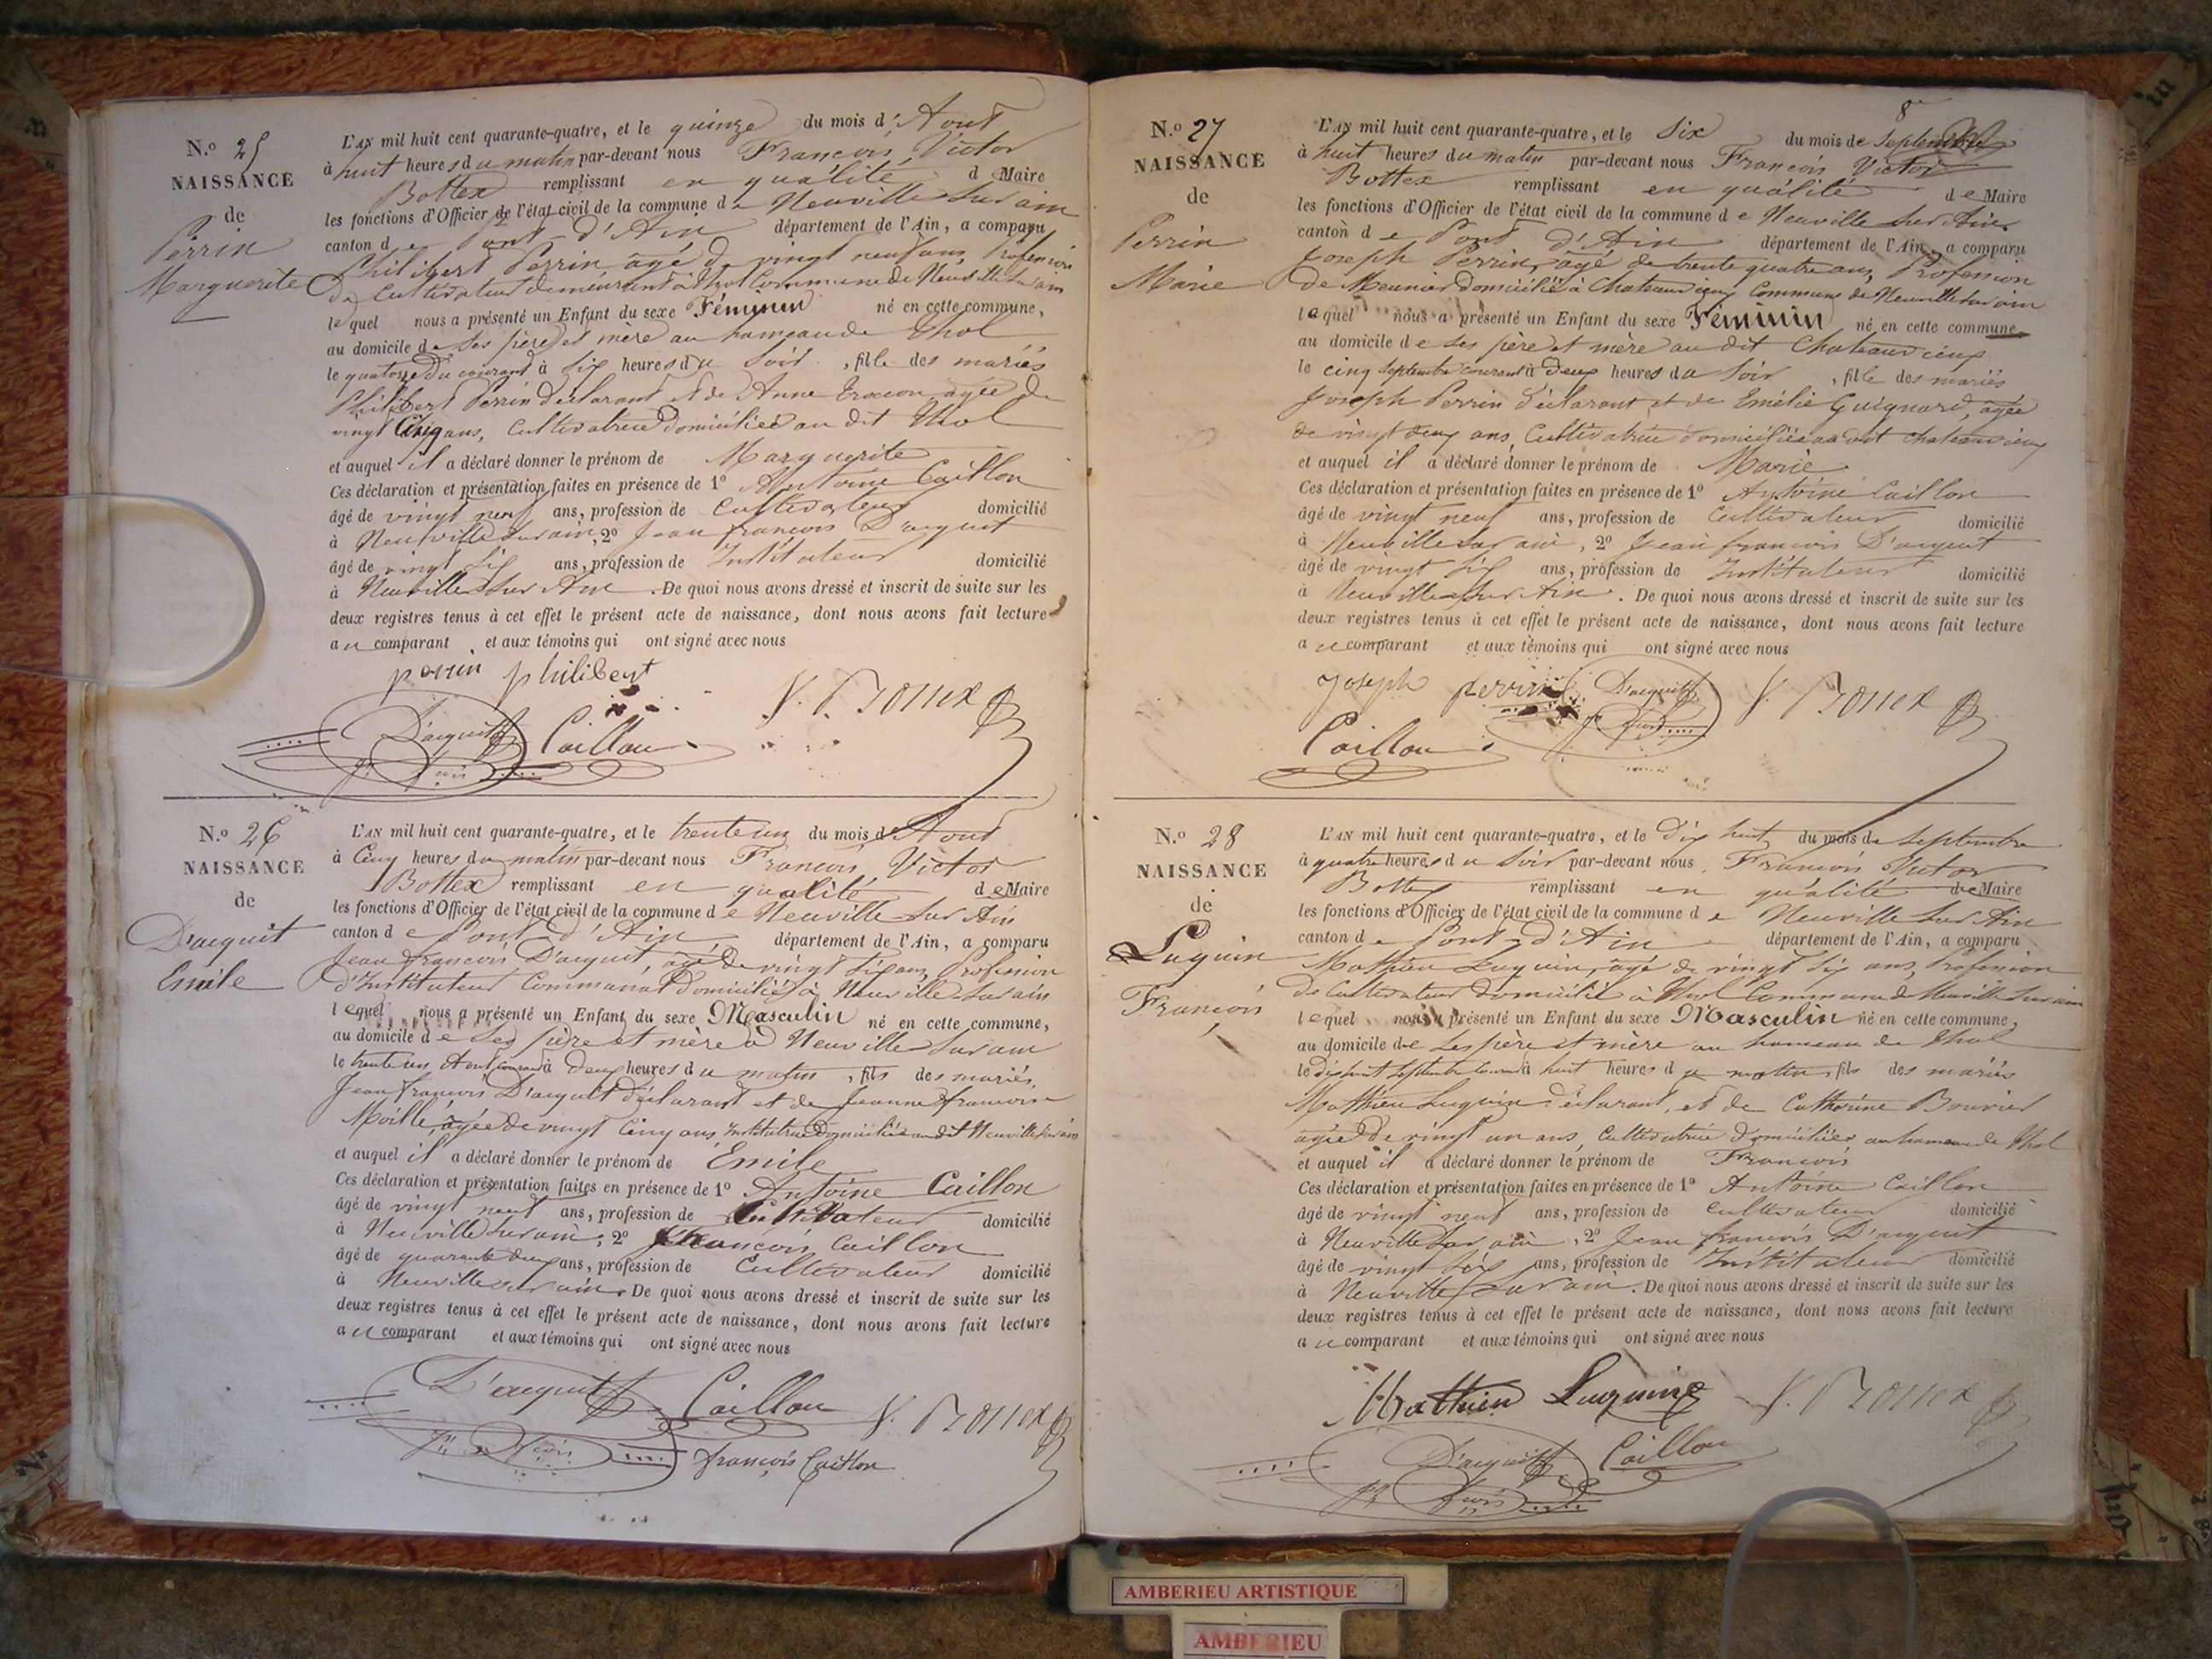 N.º 25
NAISSANCE
de
Perrin
Marguerite
L'AN mil huit cent quarante-quatre, et le quinze du mois d'Aout
à huit heures du matin par-devant nous François Victor
Bottex remplissant en qualité de Maire
les fonctions d'Officier de l'état civil de la commune de Neuville sur ain
canton de Pont d'Ain département de l'Ain, a comparu
Philibert Perrin âgé de vingt neuf ans, Profession
de Cultivateur demeurant à Thol Commune de Neuville sur ain
lequel nous a présenté un Enfant du sexe Féminin né en cette commune,
au domicile de ses père et mère au hameau de Thol
le quatorze du courant à six heures du soir, fille des mariés
Philibert Perrin déclarant et de Anne âgée de
vingt Cinq ans, Cultivatrice domiciliée au dit Thol
et auquel il a déclaré donner le prénom de Marguerite
Ces déclaration et présentation faites en présence de 1º Antoine Caillon
âgé de vingt neuf ans, profession de Cultivateur domicilié
à Neuville sur ain, 2º Jean françois D'acquit
âgé de vingt six ans, profession de Instituteur domicilié
à Neuville sur Ain. De quoi nous avons dressé et inscrit de suite sur les
deux registres tenus à cet effet le présent acte de naissance, dont nous avons fait lecture
au comparant et aux témoins qui ont signé avec nous
perrin philibert
D'acquit Caillon V. Bottex
jn fçois
N.º 26
NAISSANCE
de
D'acquit
Emile
L'AN mil huit cent quarante-quatre, et le trente un du mois d'Aout
à Cinq heures du matin par-devant nous François Victor
Bottex remplissant en qualité de Maire
les fonctions d'Officier de l'état civil de la commune de Neuville sur Ain
canton de Pont d'Ain département de l'Ain, a comparu
Jean François D'acquit, âgé de vingt six ans, Profession
d'Instituteur Communal domicilié à Neuville sur ain
lequel nous a présenté un Enfant du sexe Masculin né en cette commune,
au domicile de ses père et mère à Neuville sur ain
le trente un Aout courant à deux heures du matin, fils des mariés
Jean françois D'acquit déclarant et de Jeanne françoise
Moille, âgée de vingt Cinq ans, Institutrice domiciliée au dit Neuville sur ain
et auquel il a déclaré donner le prénom de Emile
Ces déclaration et présentation faites en présence de 1º Antoine Caillon
âgé de vingt neuf ans, profession de Cultivateur domicilié
à Neuville sur ain, 2º François Caillon
âgé de quarante deux ans, profession de Cultivateur domicilié
à Neuville sur ain. De quoi nous avons dressé et inscrit de suite sur les
deux registres tenus à cet effet le présent acte de naissance, dont nous avons fait lecture
au comparant et aux témoins qui ont signé avec nous
D'acquit Caillon V. Bottex
jn fçois françois Caillon
8
N.º 27
NAISSANCE
de
Perrin
Marie
L'AN mil huit cent quarante-quatre, et le six du mois de Septembre
à huit heures du matin par-devant nous François Victor
Bottex remplissant en qualité de Maire
les fonctions d'Officier de l'état civil de la commune de Neuville sur Ain
canton de Pont d'Ain département de l'Ain, a comparu
Joseph Perrin, âgé de trente quatre ans, Profession
de Meunier domicilié à Chateauvieux Commune de Neuville sur ain
lequel nous a présenté un Enfant du sexe Féminin né en cette commune
au domicile de ses père et mère au dit Chateauvieux
le cinq Septembre courant à deux heures du soir, fille des mariés
Joseph Perrin déclarant et de Emélie Guignard, âgée
de vingt deux ans, Cultivatrice domiciliée au dit chateauvieux
et auquel il a déclaré donner le prénom de Marie
Ces déclaration et présentation faites en présence de 1º Antoine Caillon
âgé de vingt neuf ans, profession de Cultivateur domicilié
à Neuville sur ain, 2º Jean françois D'acquit
âgé de vingt six ans, profession de Instituteur domicilié
à Neuville sur Ain. De quoi nous avons dressé et inscrit de suite sur les
deux registres tenus à cet effet le présent acte de naissance, dont nous avons fait lecture
au comparant et aux témoins qui ont signé avec nous
joseph perrin D'acquit V. Bottex
Caillon jn fçois
N.º 28
NAISSANCE
de
Luguin
François
L'AN mil huit cent quarante-quatre, et le dix huit du mois de Septembre
à quatre heures du soir par-devant nous François Victor
Bottex remplissant en qualité de Maire
les fonctions d'Officier de l'état civil de la commune de Neuville sur Ain
canton de Pont-d'Ain département de l'Ain, a comparu
Mathieu Luguin, âgé de vingt six ans, Profession
de Cultivateur domicilié à Thol Commune de Neuville sur ain
lequel nous a présenté un Enfant du sexe Masculin né en cette commune,
au domicile de ses père et mère au hameau de Thol
le dix huit Septembre courant à huit heures du matin, fils des mariés
Mathieu Luguin déclarant, et de Catherine Bouvier
âgée de vingt un ans, Cultivatrice domiciliée au hameau de Thol
et auquel il a déclaré donner le prénom de François
Ces déclaration et présentation faites en présence de 1º Antoine Caillon
âgé de vingt neuf ans, profession de Cultivateur domicilié
à Neuville sur ain, 2º Jean françois D'acquit
âgé de vingt six ans, profession de Instituteur domicilié
à Neuville sur ain. De quoi nous avons dressé et inscrit de suite sur les
deux registres tenus à cet effet le présent acte de naissance, dont nous avons fait lecture
au comparant et aux témoins qui ont signé avec nous
Mathieu Luguin V. Bottex
D'acquit Caillon
jn fçois
AMBERIEU ARTISTIQUE
AMBERIEU